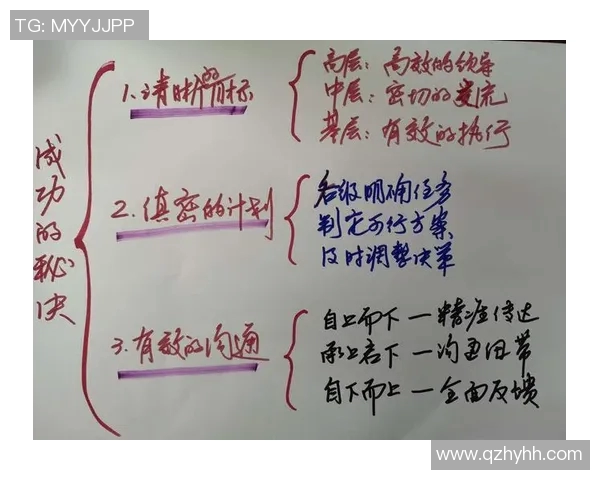 TG: MYYJJPP
成功的秘决
1.清晰的目标
高层：高效的领导
中层：密切的交流
基层：有效的执行
2.慎密的计划
各级明确任务
判定可行方案
及时调整决策
3.有效的沟通
自上而下一精准传达
承上启下一沟通纽带
自下而上一全面反馈
www.qzhyhh.com